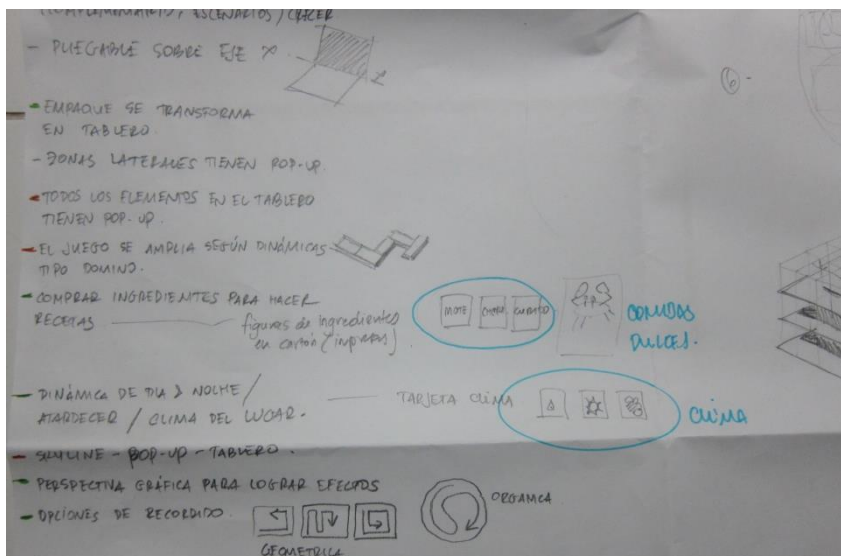 COMPLEMENTARIO, ESCENARIOS / CRECER
- PLIEGABLE SOBRE EJE X
- EMPAQUE SE TRANSFORMA
EN TABLERO.
- ZONAS LATERALES TIENEN POP-UP.
- TODOS LOS ELEMENTOS EN EL TABLERO
TIENEN POP-UP.
- EL JUEGO SE AMPLIA SEGÚN DINÁMICAS
TIPO DOMINO.
- COMPRAR INGREDIENTES PARA HACER
RECETAS
figuras de ingredientes
en cartón (impresas).
MOTE
COMIDAS
DULCES.
- DINÁMICA DE DIA & NOCHE /
ATARDECER / CLIMA DEL LUGAR.
TARJETA CLIMA
CLIMA
- SKYLINE - POP-UP - TABLERO.
- PERSPECTIVA GRÁFICA PARA LOGRAR EFECTOS
- OPCIONES DE RECORRIDO.
GEOMETRICA
ORGANICA
6-